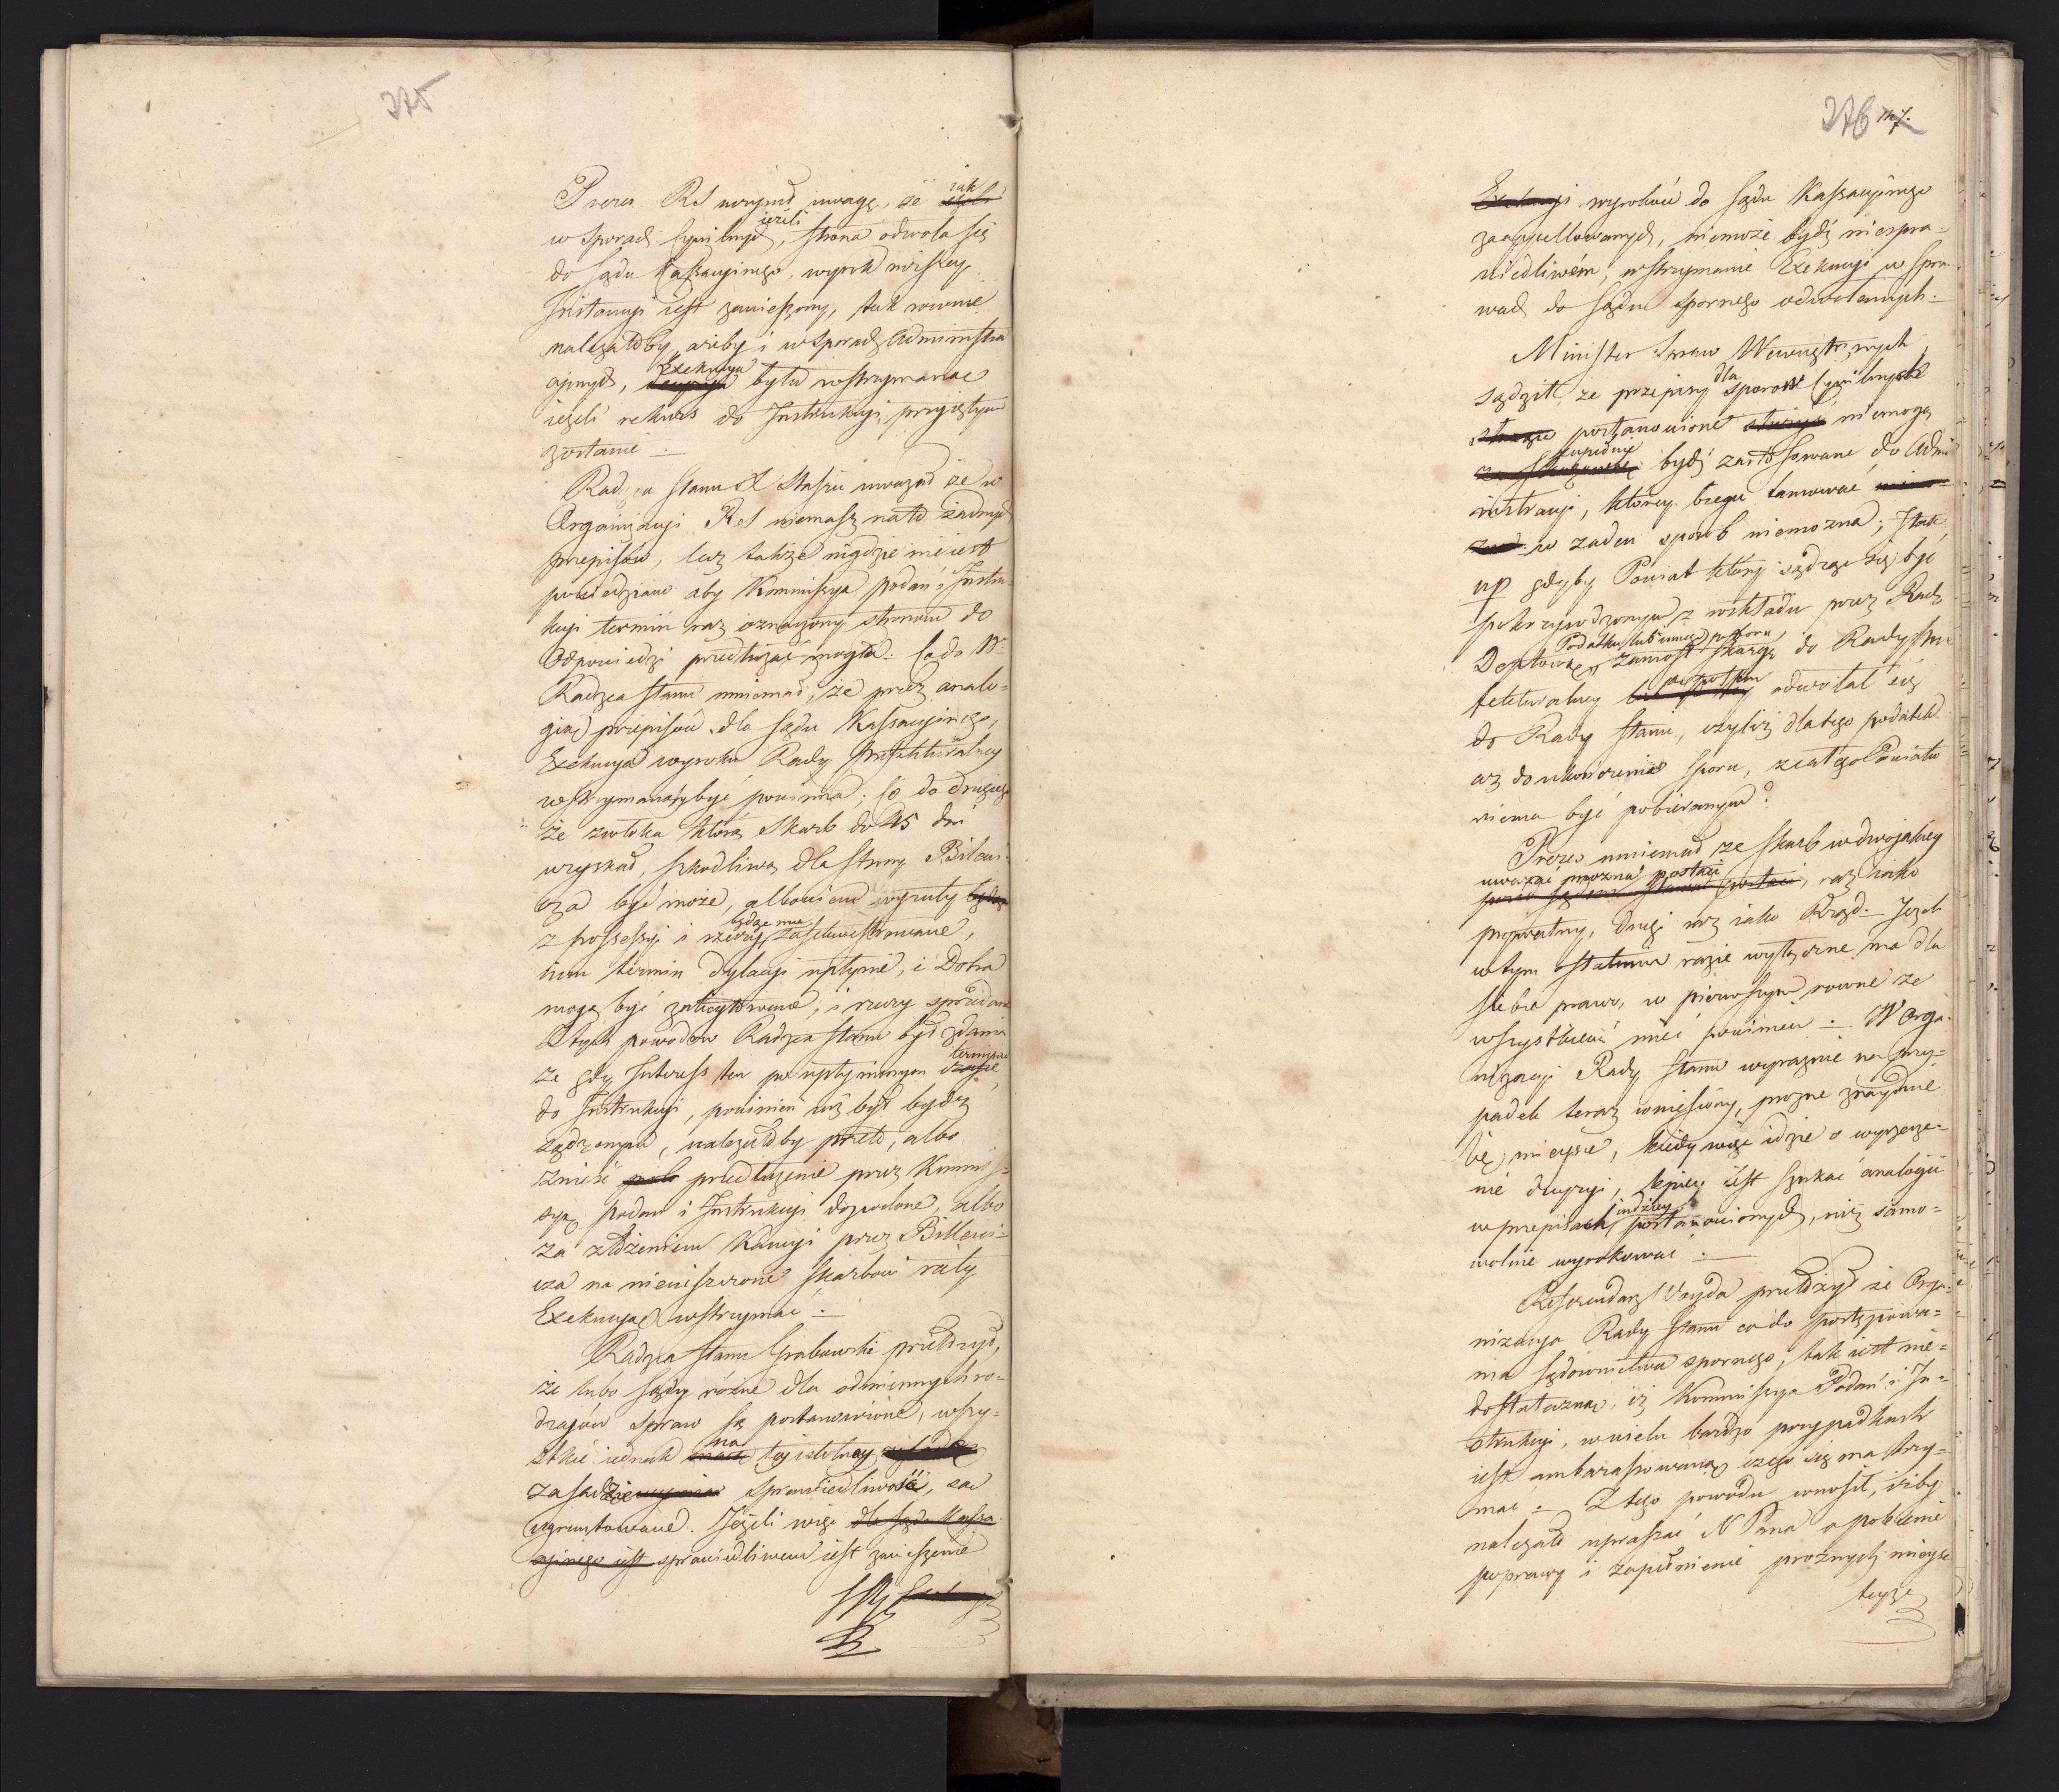 375
Prezes RS uczynił uwagę, że jak
w sporach Cywilnych, jeżeli strona odwoła się
do Sądu Kassacyinego, wyrok niższey
Instancyi jest zawieszony, tak rownie
należałoby, ażeby i w sporach Administra
cyjnych, Exekucya była wstrzymana
jeżeli rekurs do Instrukcyi przyiętym
zostanie. —
Radzca Stanu X Staszic uważał że w
Organizacyi RS niemasz na to żadnych
przepisów, lecz także nigdzie nie iest
powiedziano aby Kommissya podań i Instru-
kcyi termin raz oznaczony stronom do
Odpowiedzi przedłużać mogła. Co do 1o
Radzca Stanu mniemał, że przez analo-
gią przepisów dla Sądu Kassacyinego,
Exekucya wyroku Rady Prefekturalney
wstrzymaną być powinna; Co do drugiego
że zwłoka którą Skarb do 45 dni
uzyskał, szkodliwą dla strony
być może, albowiem wyzuty będzie
z possessyi i rzeczy będą mu zasekwestrowane,
nim termin dylacyi upłynie, i Dobra
mogą być zalicytowane, i rzeczy sprzedane
Z tych powodow Radzca Stanu był zdania
że gdy Interess ten po upłynionym terminie czasie
do Instrukcyi, powinien już był bydz
sądzonym, należałoby przeto, albo
znieść przedłużenie przez Kommis-
syą podań i Instrukcyi dozwolone, albo
za złożeniem Kaucyi przez
cza na nieuiszczone Skarbowi raty
Exekucyą wstrzymać. —
Radzca Stanu Grabowski przełożył,
że lubo Sądy różne dla odmiennych ro-
dzajów spraw są postanowione, wszy-
stkie iednak na tej istotney
zasadzie sprawiedliwość, są
ugruntowane. Jeżeli więc dla Sądu Kassa
cyinego iest sprawiedliwem iest zawieszenie
276
Exekucyi wyroków do Sądu Kassacyinego
zaappellowanych, niemoże bydź niespra-
wiedliwém, wstrzymanie Exekucyi w spra
wach do Sądu spornego odwołanych. —
Minister Spraw Wewnętrznych
sądził, że przepisy dla sporow Cywilnych
postanowione niemogą
zupełnie bydź zastosowane do Admi
nistracyi, którey biegu tamować
w żaden sposób niemożna; I tak
np gdyby Powiat który sądząc się być
pokrzywdzonym z rozkładu przez Radę
Deptową Podatku lub innego poboru, zaniosł skargę do Rady Pre
fekturalney a potem odwołał się
do Rady Stanu, czyliż dla tego podatek
aż do ukończenia sporu, z całego Powiatu
niema być pobieranym?
Prezes mniemał że Skarb w dwojakiey
uważać można postaci, raz iako
prywatny, drugi raz iako Rząd. — Jeżeli
w tym ostatnim razie wyłączne ma dla
siebie prawo, w pierwszym rowne ze
wszystkiemi mieć powinien. — W Orga-
nizacyi Rady Stanu wyraźnie na przy-
padek teraz wniesiony, prożne znayduie
się mieysce, kiedy więc idzie o wyrzecze-
nie decyzyi, lepiey iest szukać analogii
w przepisach indziey postanowionych, niż samo-
wolnie wyrokować. —
Referendarz Wyda przełożył że Orga-
nizacya Rady Stanu co do postępowa-
nia Sądownictwa spornego, tak iest nie-
dostateczną, iż Kommissya Podań i In-
strukcyi, w wielu bardzo przypadkach
iest ambarasowaną czego się ma trzy-
mać. — Z tego powodu wnosił, iżby
należało upraszać N Pana o polecenie
poprawy i zapełnienie prożnych mieysc
teyże